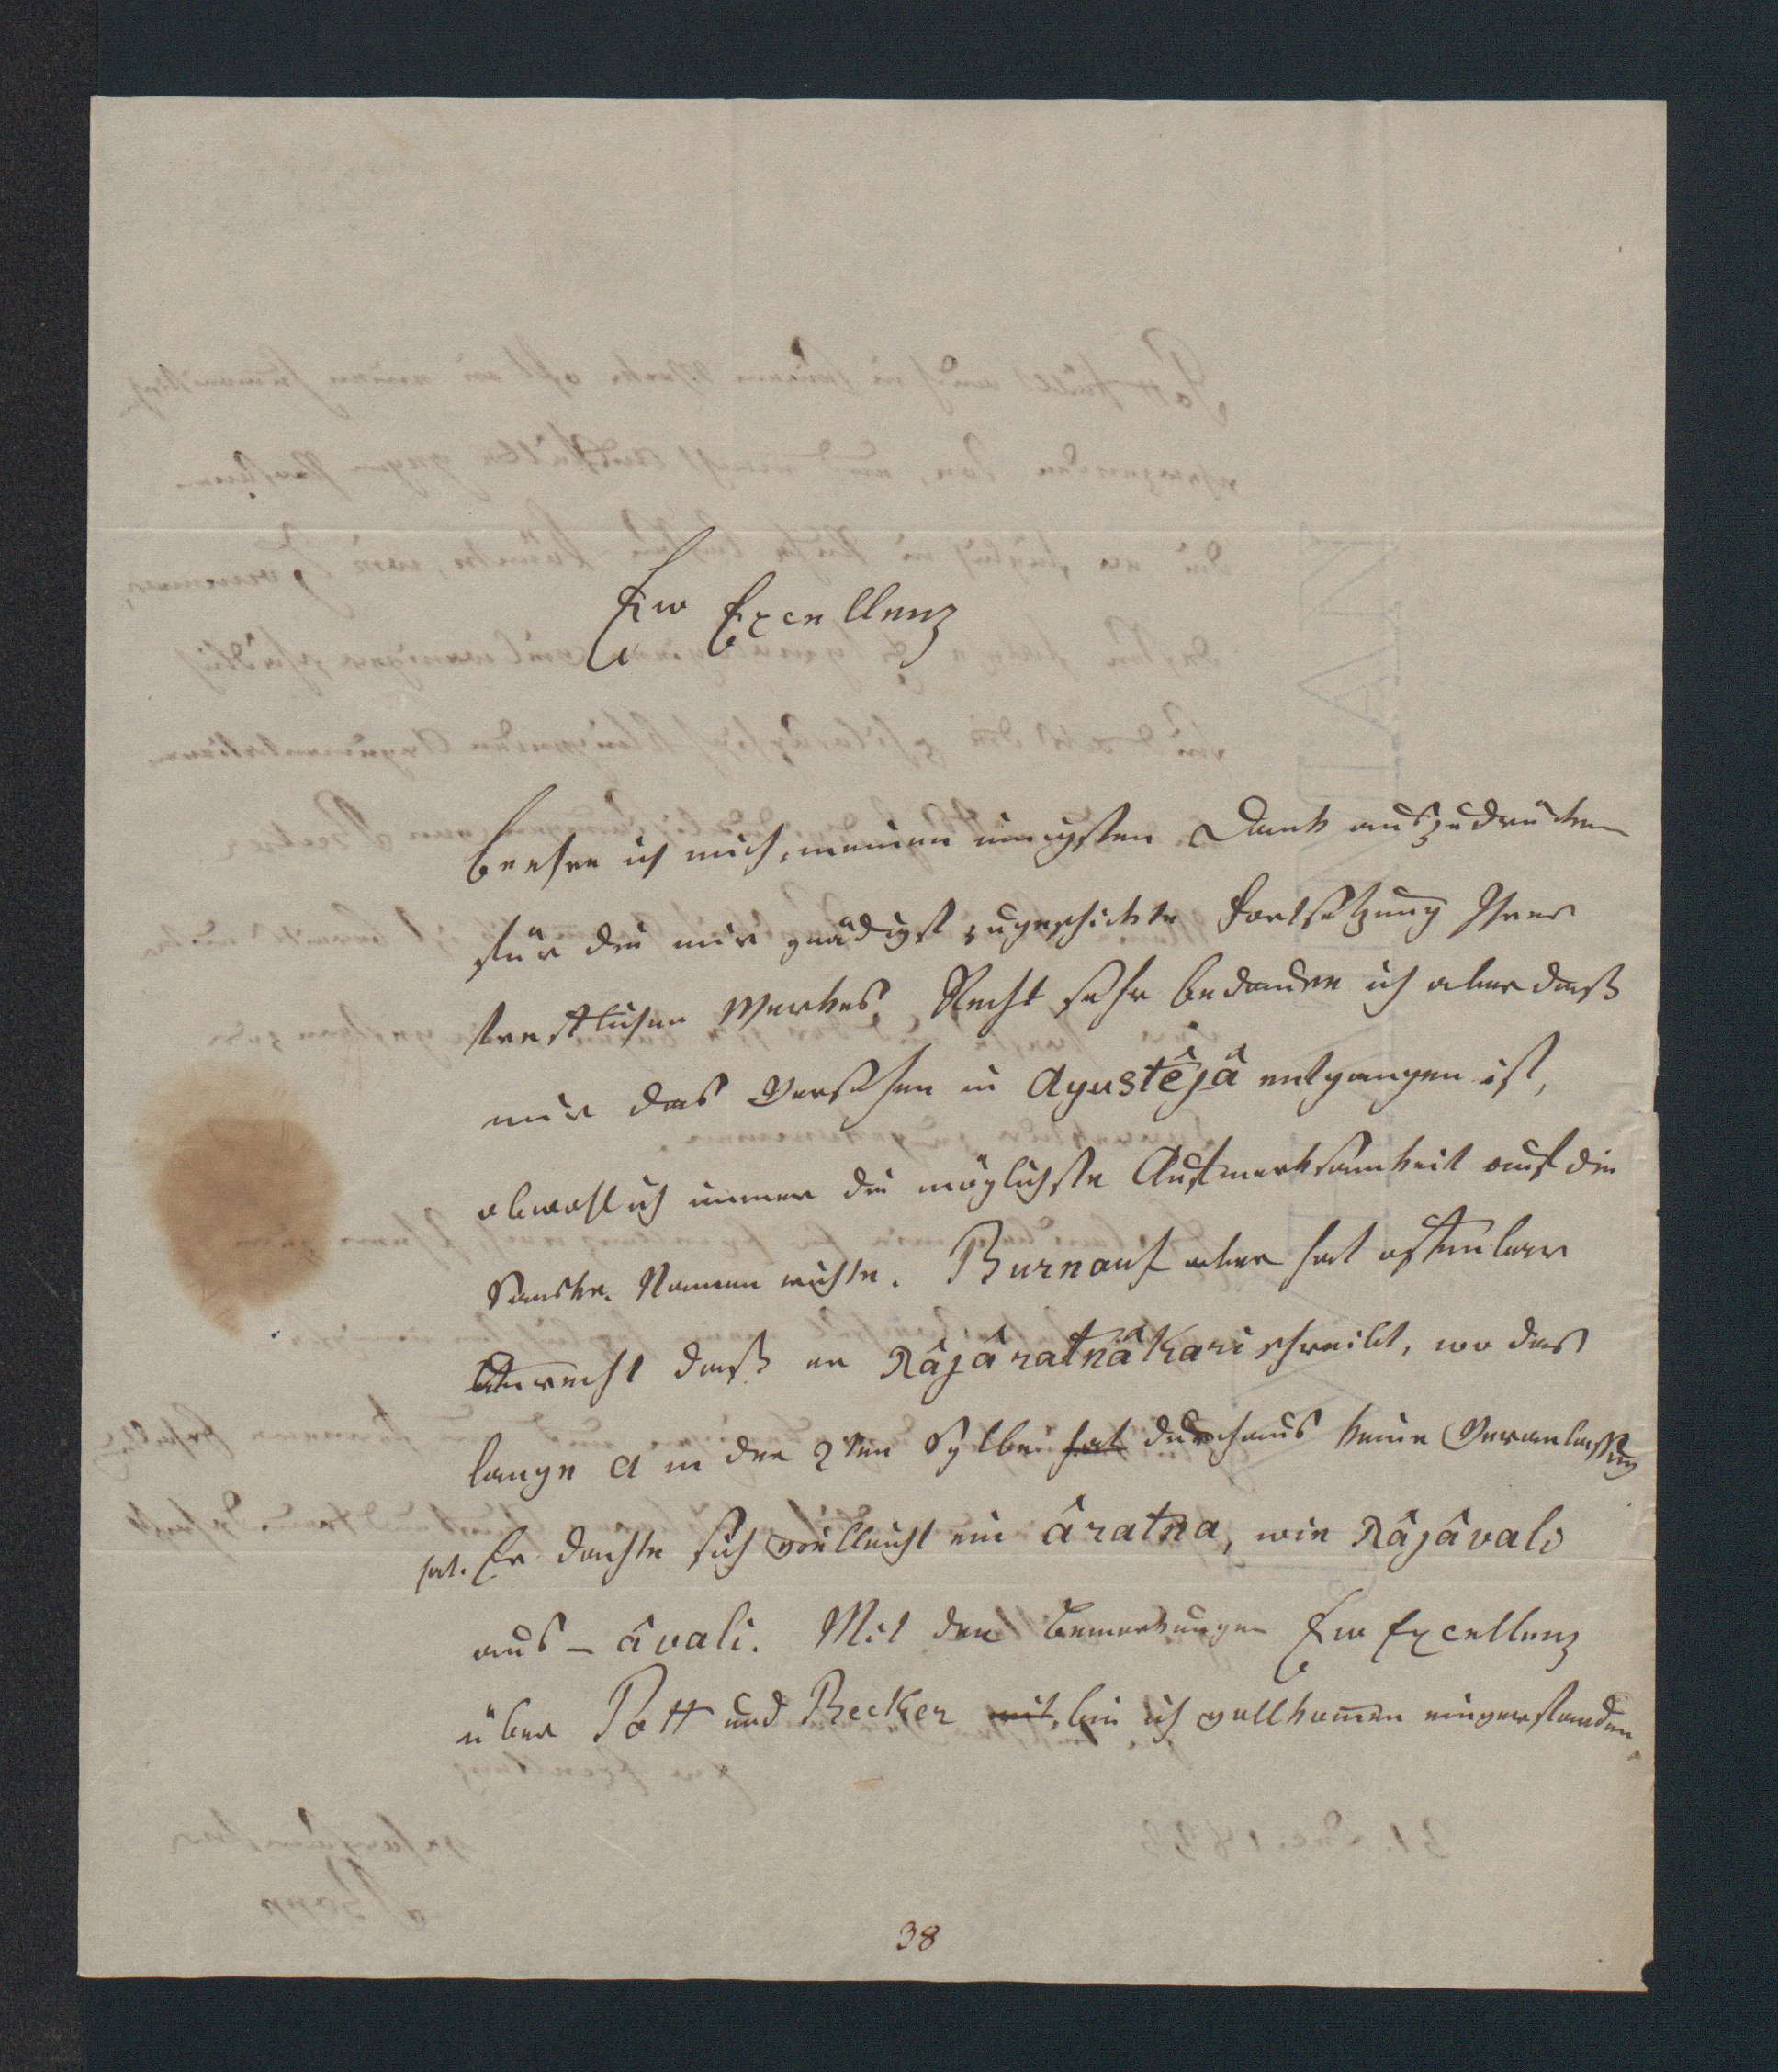 Ew Excellenz
beehre ich mich, meinen innigsten Dank auszudrücken
für die mir gnädigst zugeschickte Fortsetzung Ihres
trefflichen Werkes. Recht sehr bedaure ich aber daß
mir das Versehen in Ayustêjâ entgangen ist,
obwohl ich immer die möglichste Aufmerksamkeit auf die
Sanskr. Namen richte. Burnouf aber hat offenbar
Unrecht daß er Râjâratnâkari schreibt, wo das
lange a in der 2ten Sylbe hat durchaus keine Veranlassung
hat. Er dachte sich vielleicht ein âratna, wie Râjâvali
aus - âvali. Mit den Bemerkungen Ew Excellenz
über Pott und Becker mit, bin ich vollkomen einverstanden.
38